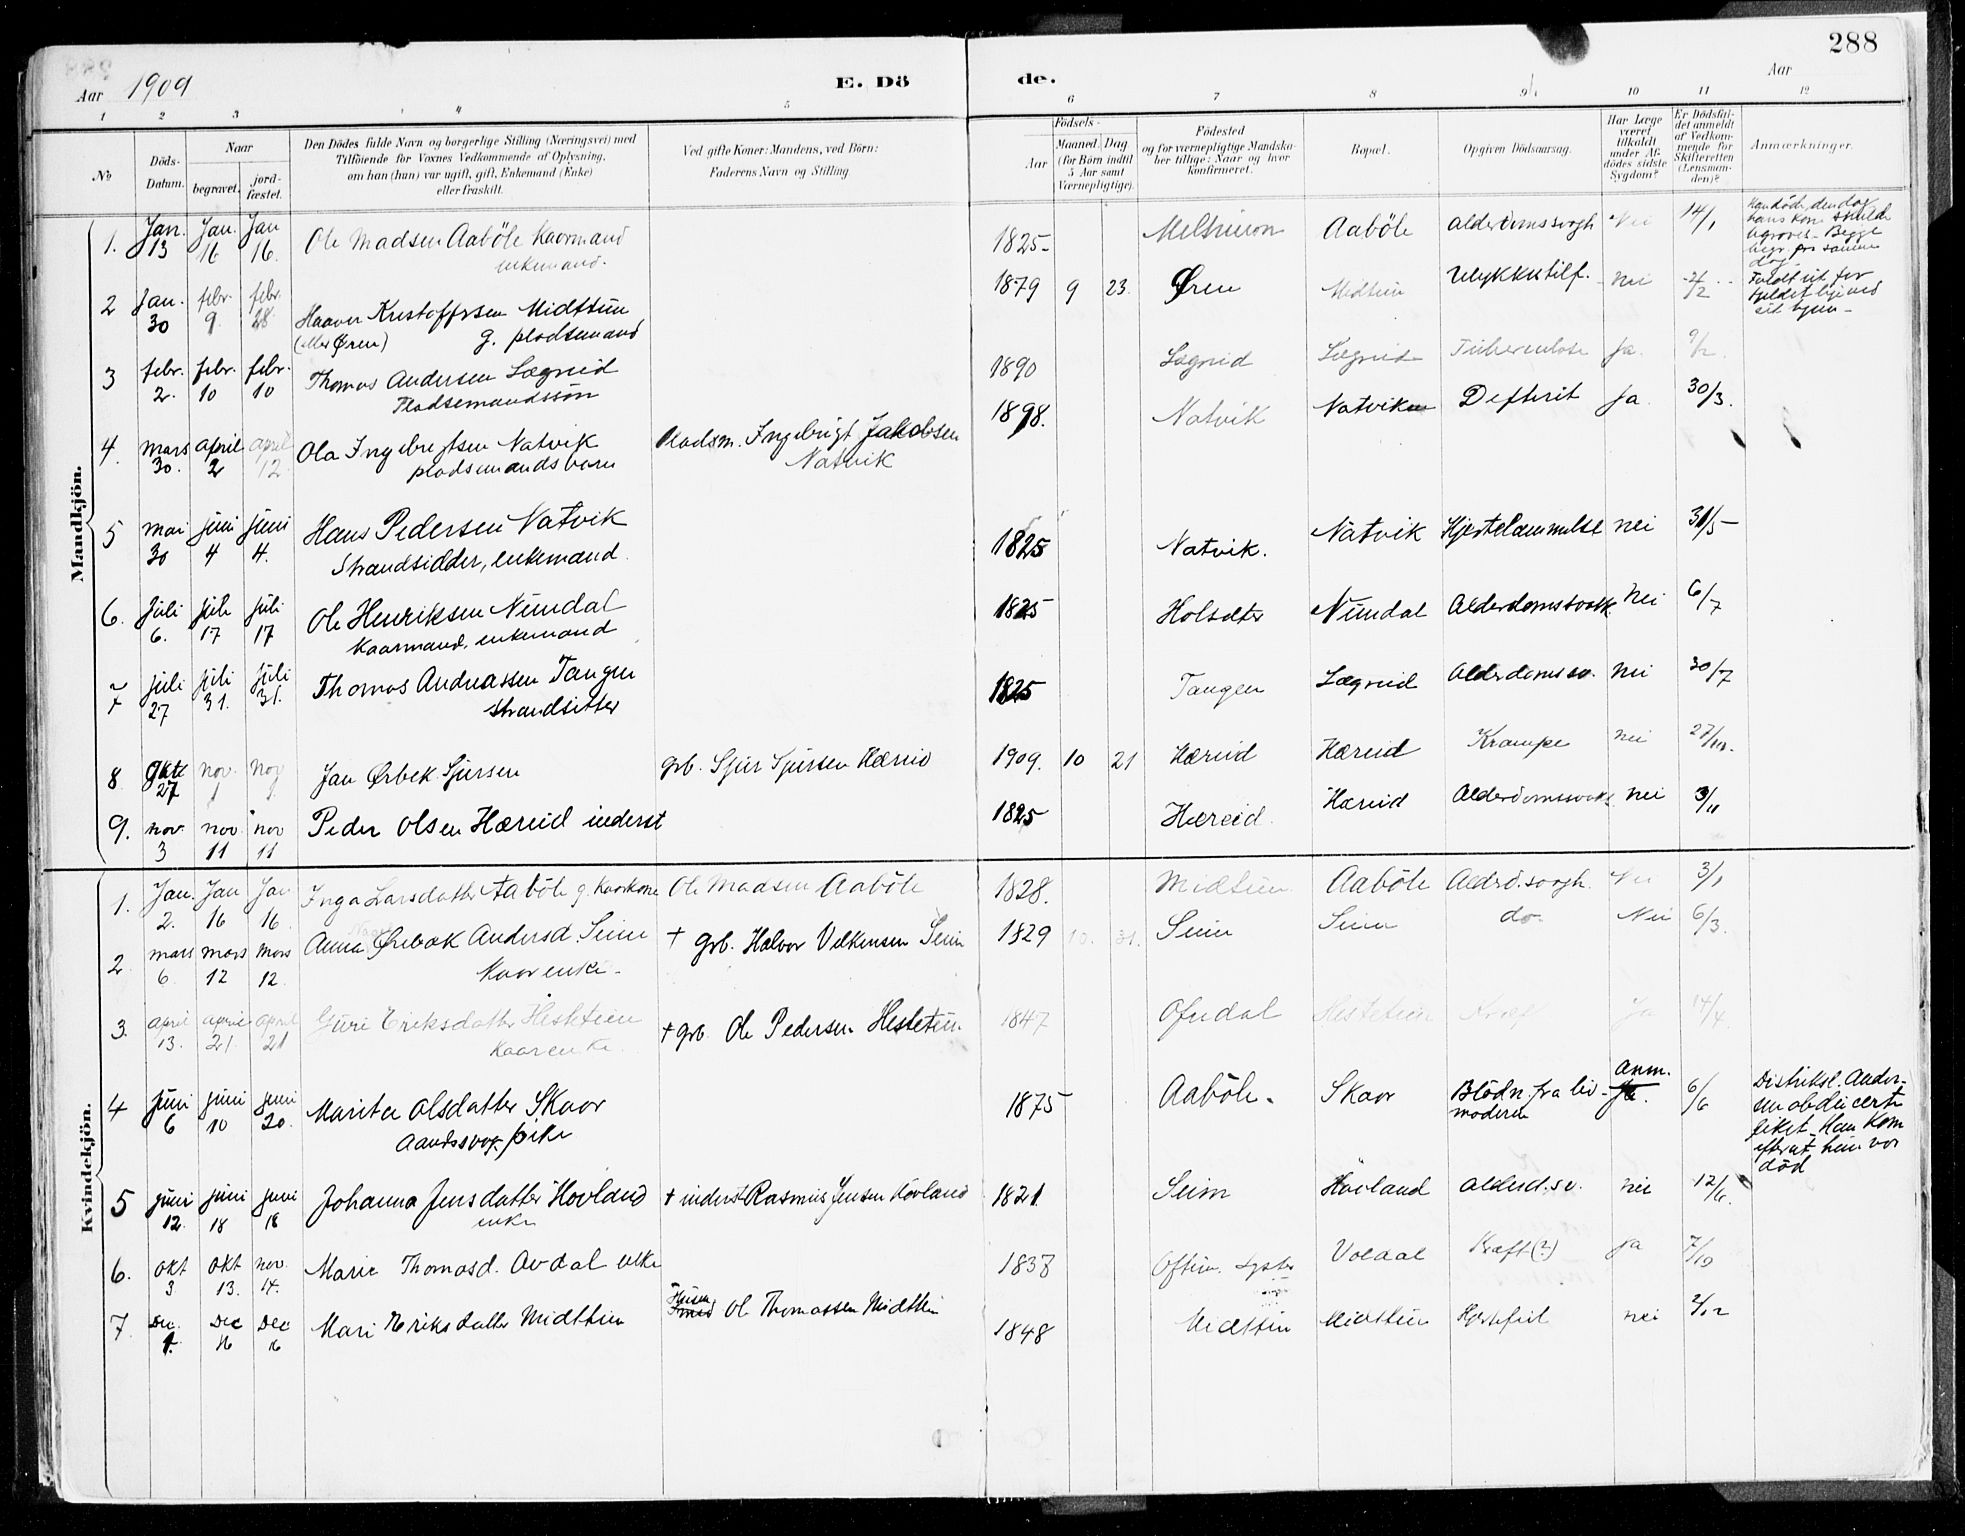 288
Aar 1909
E. Dö
de.
Aar
1 2 3 4 5 6 7 8 9 10 11 12
No
Döds-Datum.
Naar
begravet.
jord-fæstet.
Den Dödes fulde Navn og borgerlige Stilling (Næringsvei) med
Tilföiende for Voxnes Vedkommende af Oplysning,
om han (hun) var ugift, gift, Enkemand (Enke)
eller fraskilt.
Ved gifte Koner: Mandens, ved Börn:
Faderens Navn og Stilling.
Födsels-
Aar
Maaned. Dag.
(for Börn indtil
5 Aar samt
Værnepligtige).
Födested
og for værnepligtige Mandska-
ber tillige: Naar og hvor
konfirmeret.
Bopæl.
Opgiven Dödsaarsag.
Har Læge
været
tilkaldt
under Af-
dödes sidste
Sygdom?
Er Dödsfal-
det anmeldt
af Vedkom-
mende for
Skifteretten
(Lensman-
den)?
Anmærkninger.
Mandkjön.
1. Jan. 13 Jan. 16 Jan 16. Ole Madsen Aaböle Kaarmand
enkemand.
1825- Aaböle Alderdomssvagh Nei 14/1
Han döde den dag
hans kone skulde
begraves. Begge
begr. paa samme
dag.
2 Jan. 30 febr. 9. febr. 28 Haavar Kristoffersen Midttun
(eller Øren) g. pladsemand
1879 9 23. Øren Midtun Ulykkestilf. nei 2/2
Faldt ut for
fjeldet lige ved
sit hjem
3 febr. 2. febr. 10 febr. 10 Thomas Andersen Lægreid
Pladsemandssön
1890 Lægreid Lægreid Tuberculose Ja. 9/2
4. mars 30. april 2 april 12 Ola Ingebrigtsen Natvik
pladsemandsbarn
Pladsm. Ingebrigt Jakobsen
Natvik
1898. Natvik Natviken Difterit Ja. 30/3.
5 mai 30 juni 4 juni 4. Hans Pedersen Natvik
Strandsidder, enkemand.
1825 Natvik. Natvik Hjertelammelse nei 31/5
6. Juli 6. juli 17 juli 17 Ole Henriksen Nundal
Kaarmand, enkemand
1825 Holsæter Nundal Alderdomssvakh nei 6/7
7 juli 27 juli 31. juli 31. Thomas Andreassen Tangen
strandsitter
1825 Tangen Lægreid Alderdomssv. nei 30/7
8 Okt. 27 nov. 1 nov 1 Jan Ørbek Sjursen
grb. Sjur Sjursen Hæreid
1909. 10 21 Hæreid Hæreid Krampe nei 27/10.
9. nov. 3 nov. 11 nov 11 Peder Olsen Hæreid inderst
1825 Hæreid. Hæreid Alderdomssvakh nei 3/11
Kvindekjön.
1. Jan. 2. Jan 16 Jan 16. Inga Larsdatter Aaböle g. Kaarkone
Ole Madsen Aaböle
1828. Midtun Aaböle Alderd.svagh. Nei 3/1
2 mars 6 mars 12 mars 12. Anna Ørbæk Andersd. Seim
Kaarenke-
† grb. Halvor Velkensen Seim
1829 10. 31. Seim Seim do- Nei 6/3.
3. april 13. april 21. april 21 Guri Eriksdatter Hestetun
Kaarenke.
† grb. Ole Pedersen Hestetun.
1847 Ofndal Hestetun Kræf Ja 14/4
4 Juni 6 juni 10 juni 20. Marita Olsdatter Skaar
Aandssvag pike
1875 Aaböle. Skaar Blödn. fra liv-
moderen
Anm. Ja. 6/6
Distriktsl. Ander-
sen obducerte
liket. Han kom
efterat hun var
död
5 juni 12. juni 18 juni 18 Johanna Jensdatter Hovland
enke
† inderst Rasmus Jensen Hovland
1821. Seim Hovland Alderd.sv. nei 12/6.
6. Okt 3 Okt 13. nov. 14. Marie Thomasd. Avdal enke
1838 Voldal Kræft (?) Ja 7/10
7. Dec. 1. Dec 16 Dec 16 Mari Eriksdatter Midttun
Husm. Ole Thomassen Midttun
1848 Midttun Midttun Hjertefeil nei 2/12